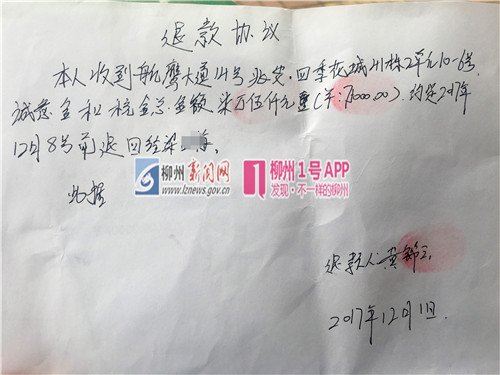 退款协议
本人收到航鹰大道14号兆安·四季花城 2单元10-6号
诚意金和税金总金额柒万伍仟元整(羊: 000.00).约定2017年
12月8号前退回给梁 海.
柳州新闻网
www.lznews.gov.cn
柳州1号APP
发现·不一样的柳州
此据
退款人:黄
2017年12月1日.